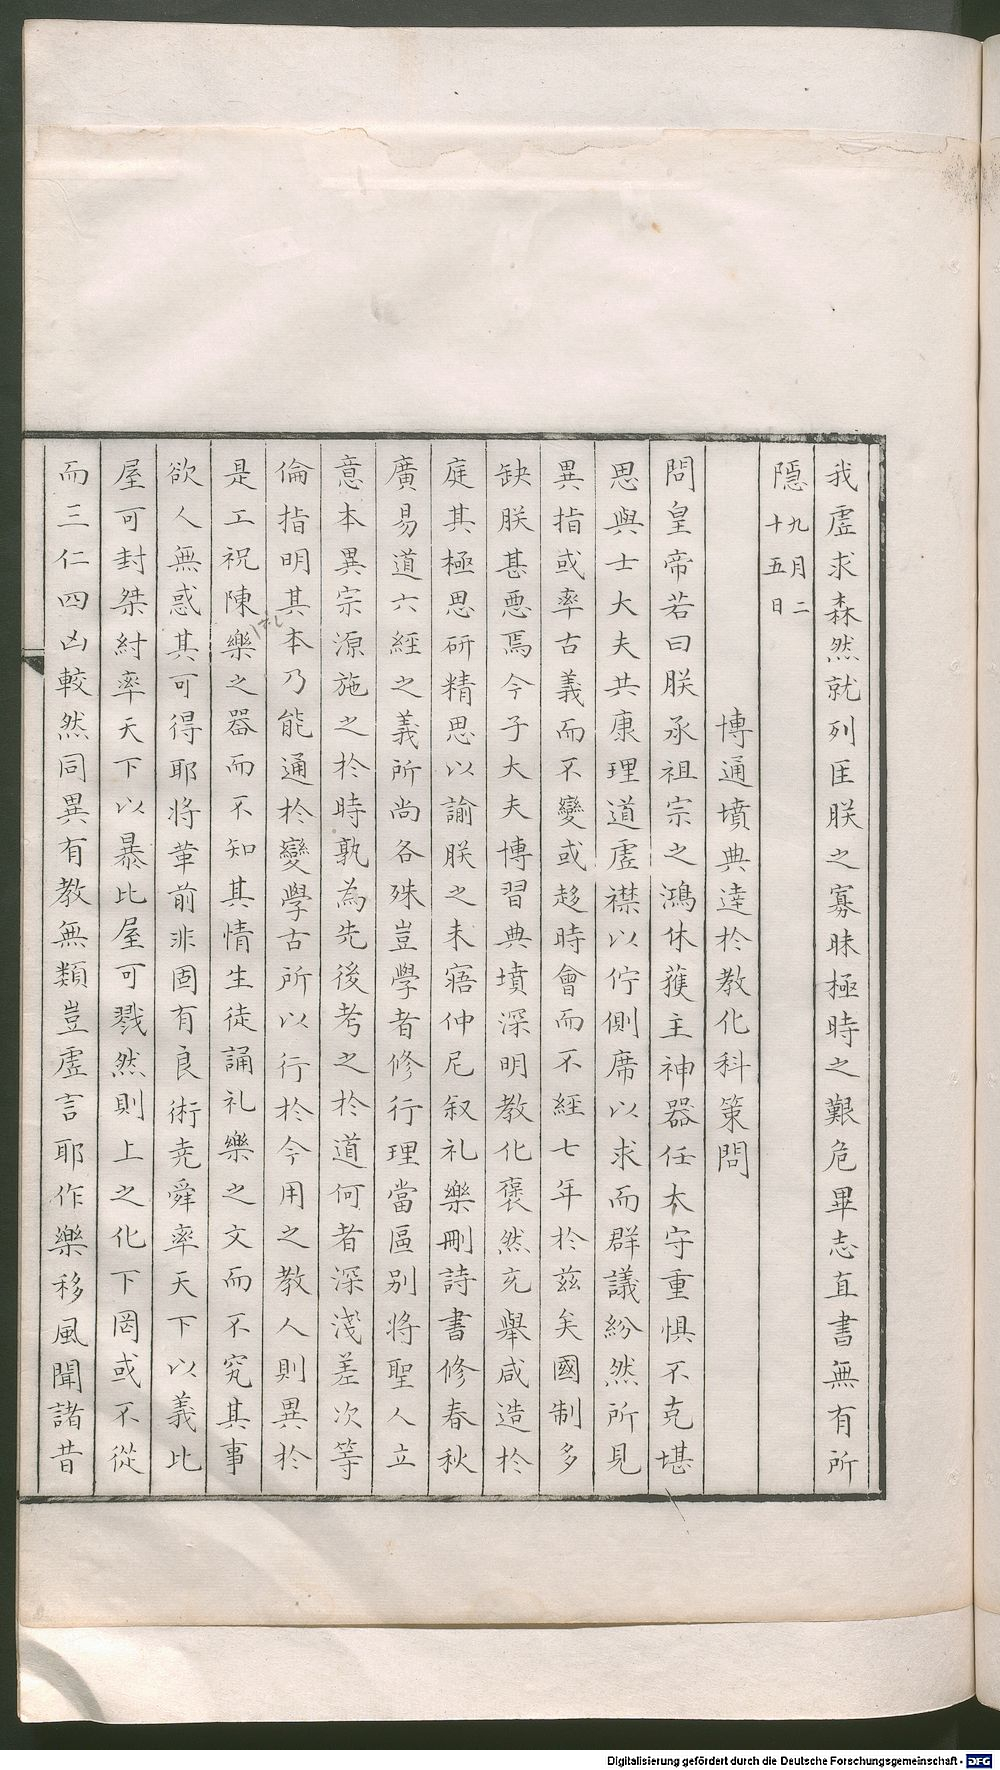 我虛求森然就列匡朕之寡昧極時之艱危畢志直書無有所
隱九月二十五日
博通墳典達於教化科策問
問皇帝若曰朕承祖宗之鴻休蓰主神器任大守重惧不克堪
思與士大夫共康理道虛襟以佇側席以求而群議紛然所見
異指或率古義而不變或趍時會而不經七年於茲矣國制多
缺朕甚恧焉今子大夫博習典墳深明教化褎然充舉咸造於
庭其極思研精思以諭朕之未寤仲尼叙礼樂刪詩書修春秋
廣易道六經之義所尚各殊豈學者修行理當區别將聖人立
意本異宗源施之於時孰為先後考之於道何者深淺差次等
倫指明其本乃能通於變學古所以行於今用之教人則異於
是工祝陳樂之器而不知其情生徒誦礼樂之文而不究其事
欲人無惑其可得耶將革前非固有良術堯舜率天下以義比
屋可封桀紂率天下以暴比屋可戮然則上之化下罔或不從
而三仁四凶較然同異有教無類豈虛言耶作樂移風聞諸昔
Digitalisierung gefördert durch die Deutsche Forschungsgemeinschaft - DFG